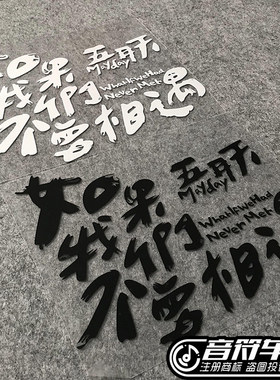 如果
五月天
Mayday
我們
What If We Had
Never Met
不曾相遇
如果
五月天
Mayday
我們
What If We Had
Never Met
不曾相遇
音符
注册商标 盗图